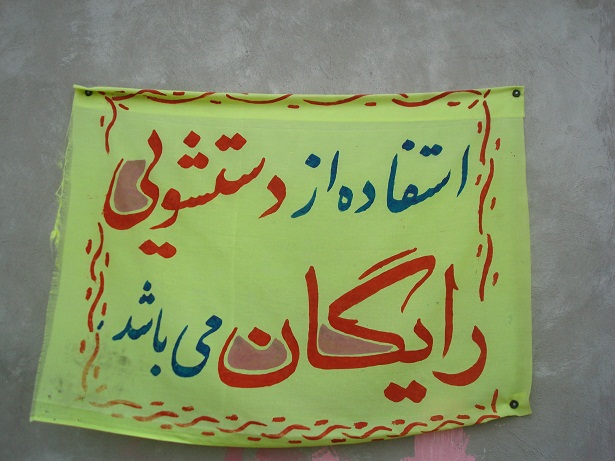 استفاده از دستشویی
رایگان می باشد